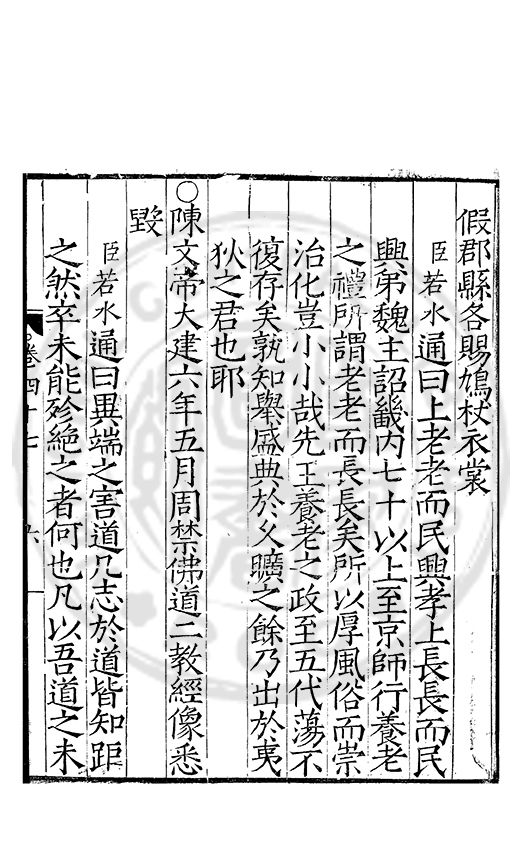 假郡縣各賜鳩杖衣裳
臣若水通曰上老老而民興孝上長長而民
興第魏主詔畿内七十以上至京師行養老
之禮所謂老老而長長矣所以厚風俗而崇
治化豈小小哉先王養老之政至五代蕩不
復存矣孰知舉盛典於久曠之餘乃出於夷
狄之君也耶
○陳文帝大建六年五月周禁佛道二教經像悉
毀
臣若水通曰異端之害道凡志於道皆知距
之然卒未能殄絶之者何也凡以吾道之未
卷四十七
六